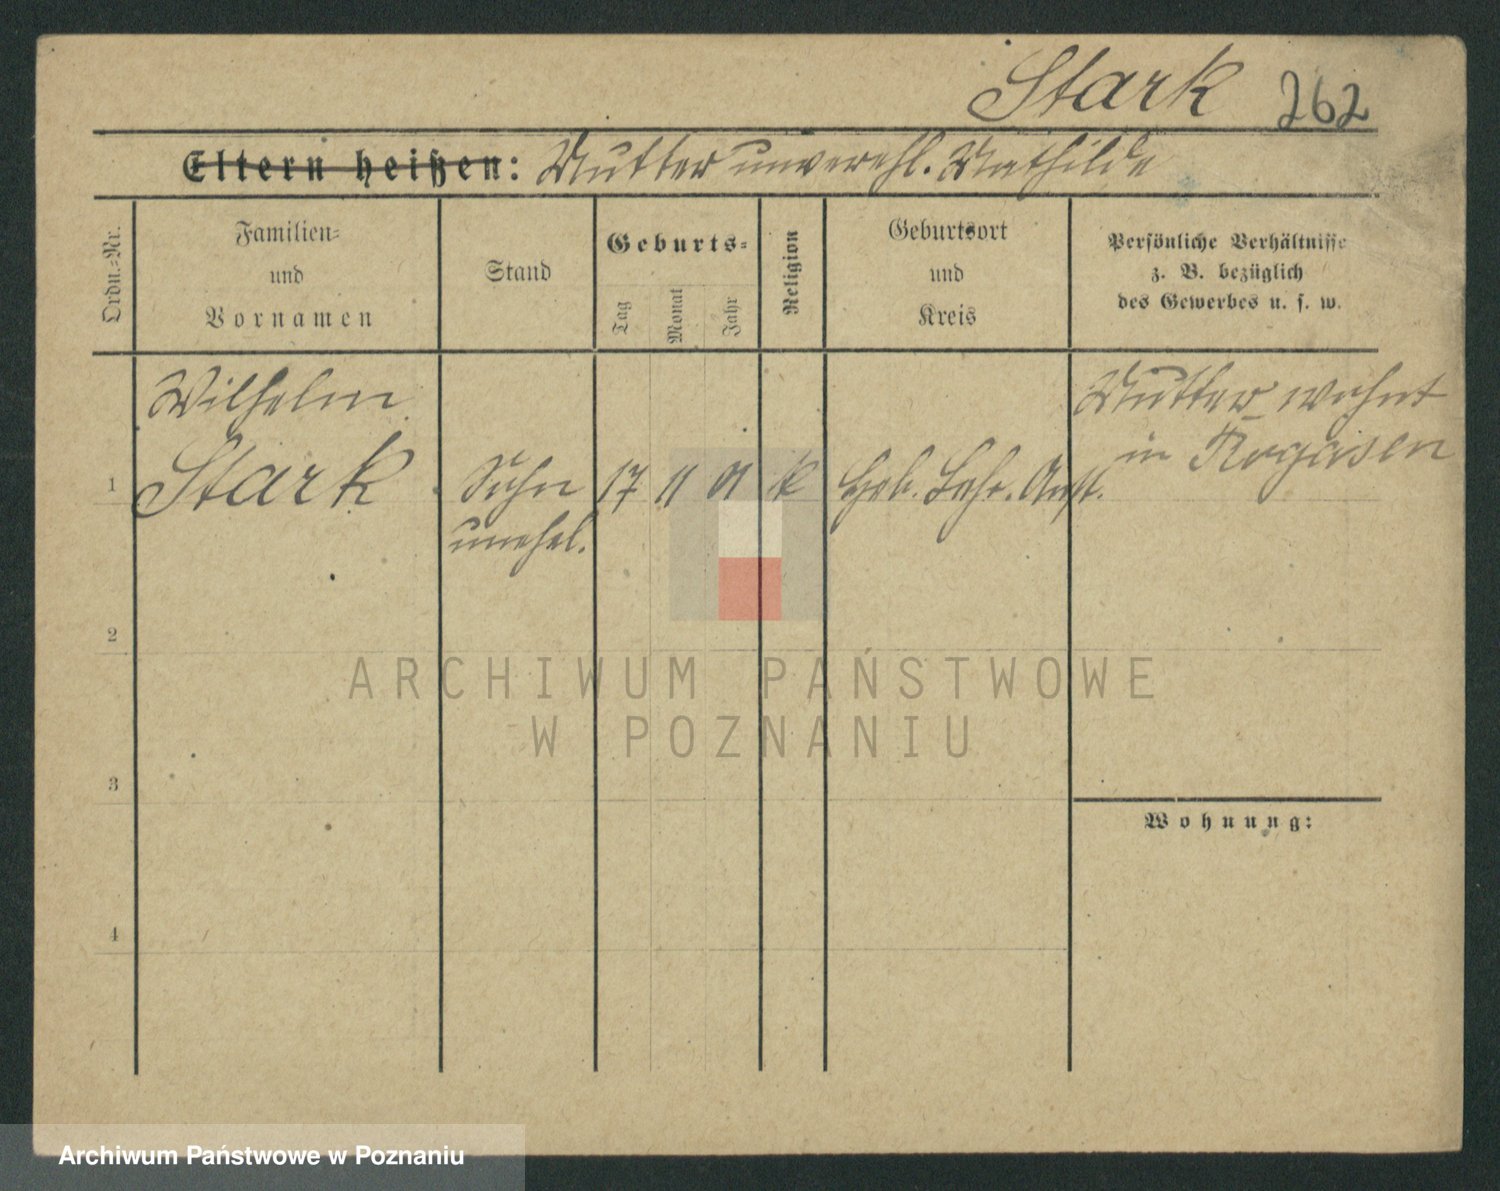 Stark 262
Eltern heißen: Mutter unverehl. Mathilde
Ordn.-Nr.
Familien-
und
Vornamen
Stand
Geburts-
Tag
Monat
Jahr
Religion
Geburtsort
und
Kreis
Persönliche Verhältnisse
z. B. bezüglich
des Gewerbes u. s. w.
Wilhelm
Mutter wohnt
in Rogasen
1 Stark Sohn 17 11 01 k Heb. Lehr. Anst.
unehel.
2
ARCHIWUM PAŃSTWOWE
W POZNANIU
3
Wohnung:
4
Archiwum Państwowe w Poznaniu